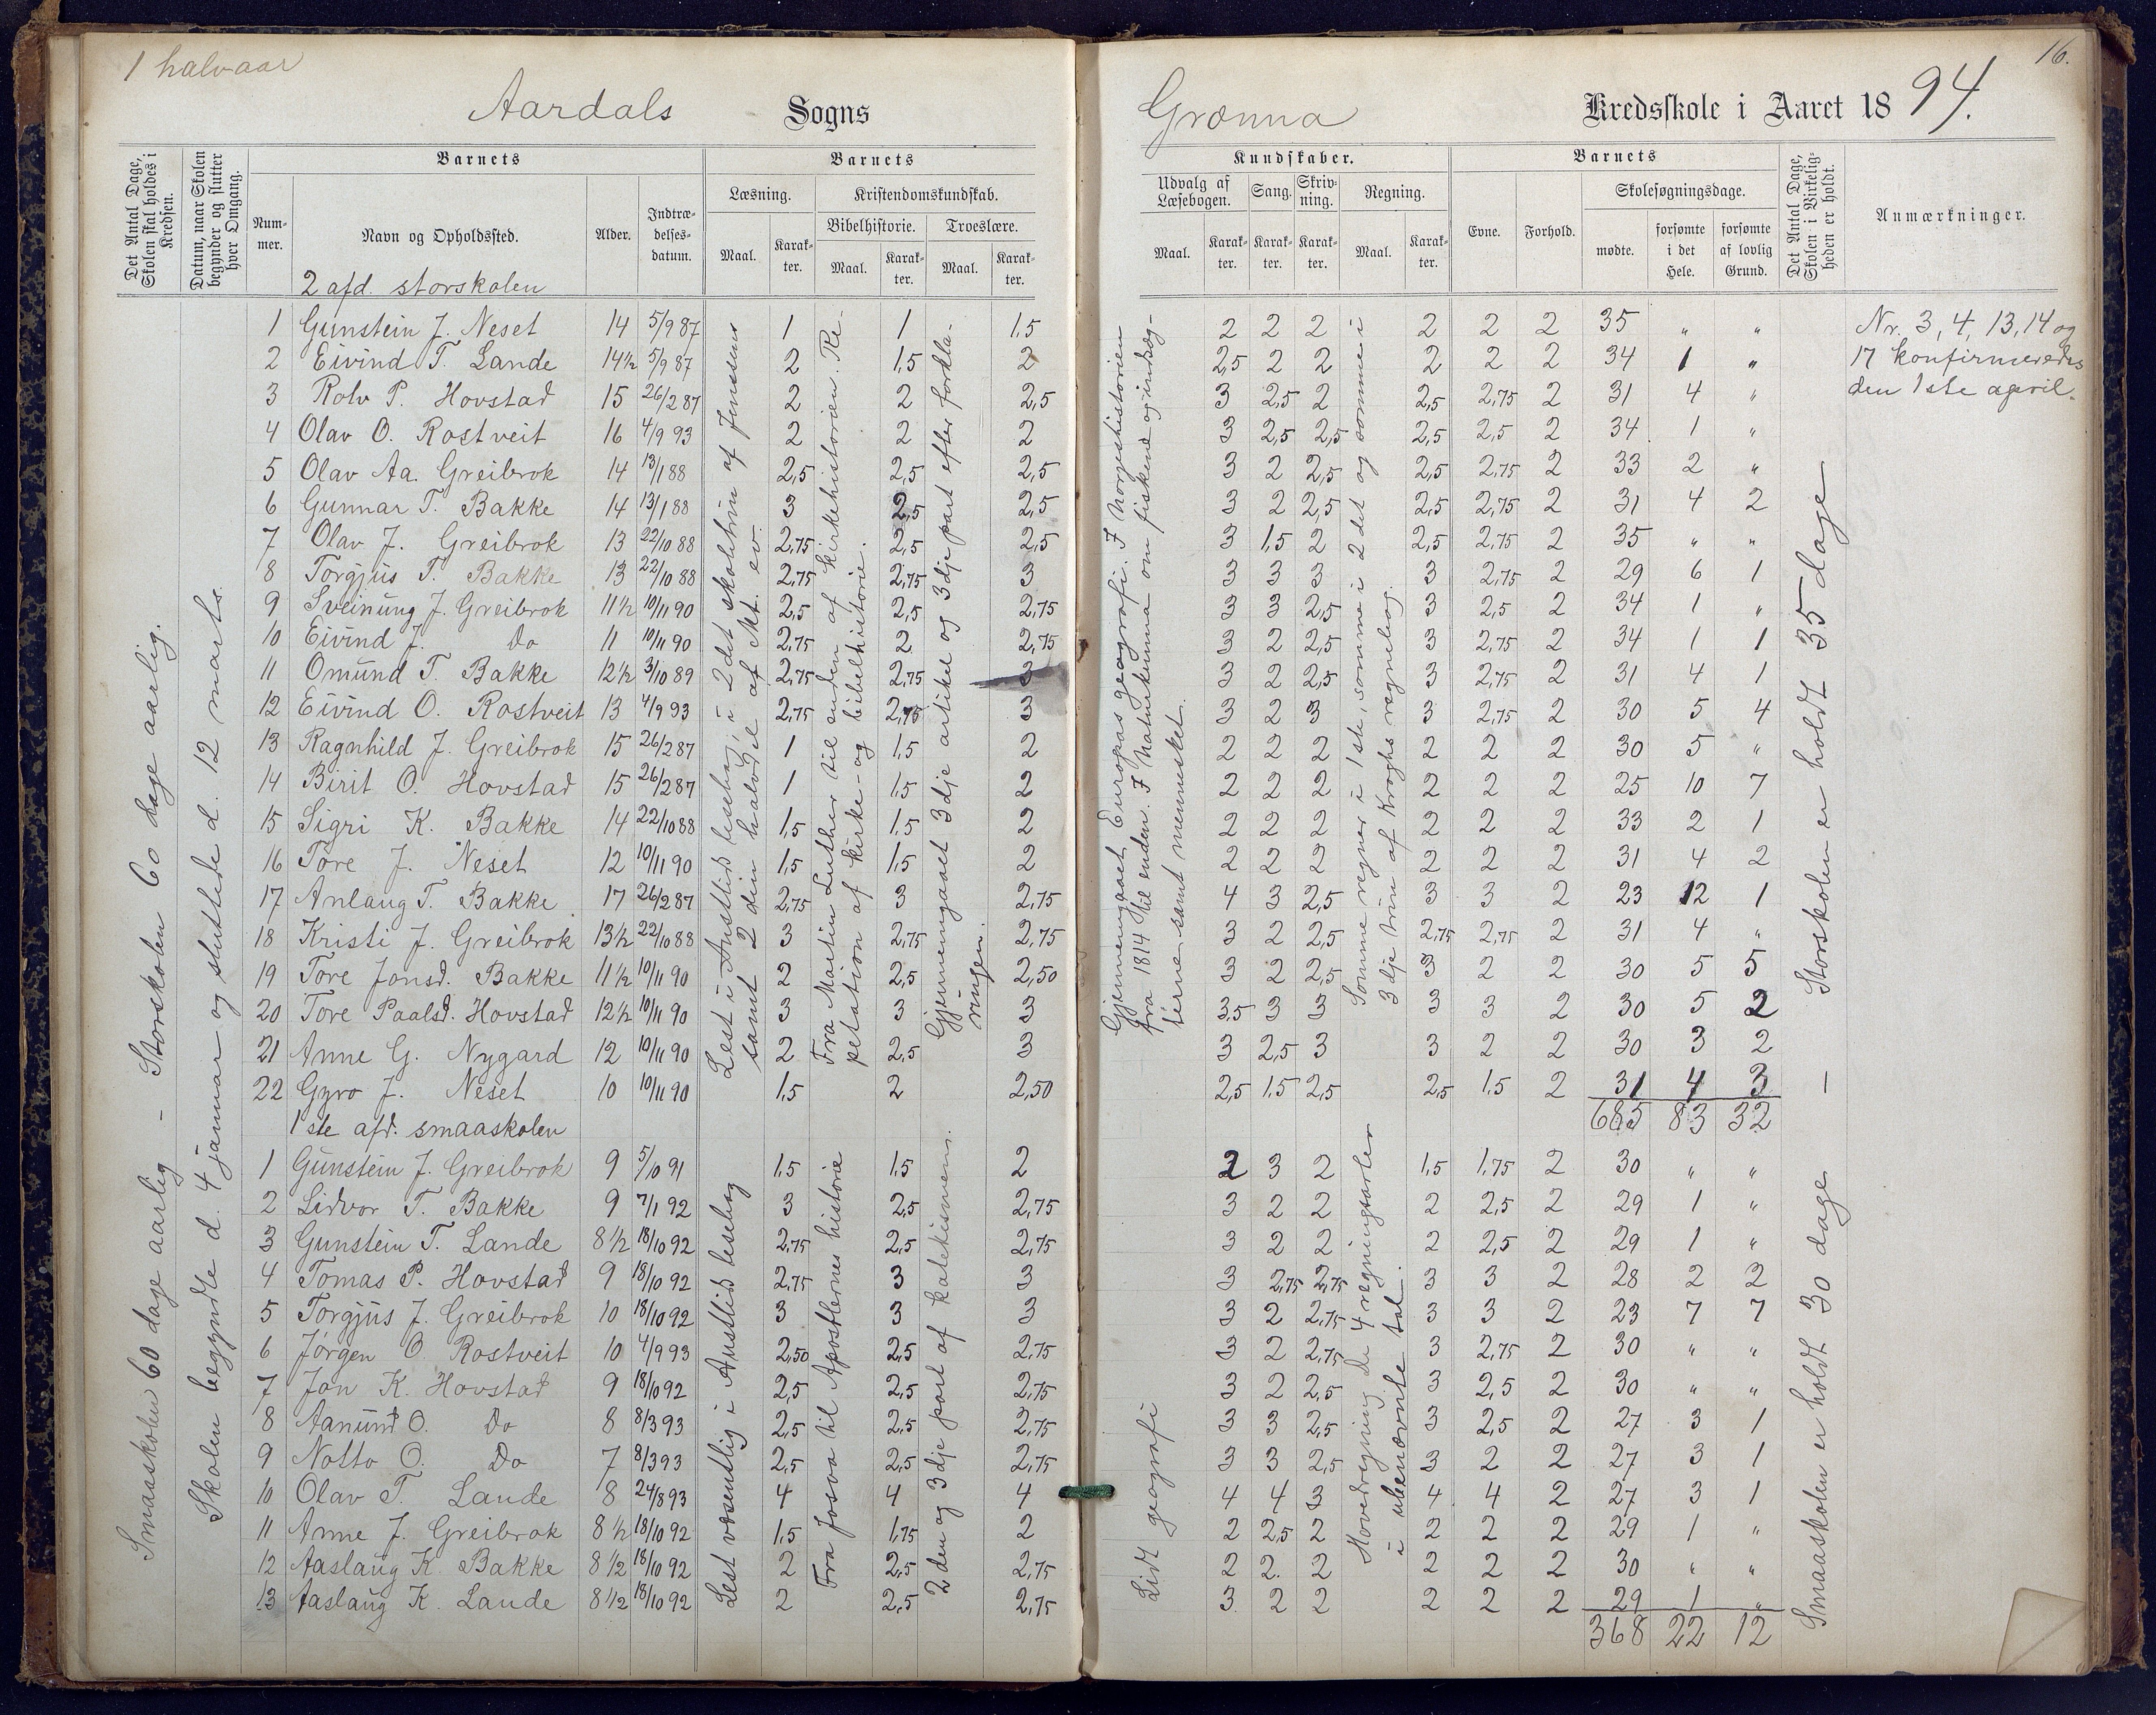 1 halvaar
16.
Aardals Sogns
Grœnna Kredsskole i Aaret 1894.
Det Antal Dage, Skolen skal holdes i Kredsen.
Datum, naar Skolen begynder og slutter hver Omgang.
Barnets
Nummer.
Navn og Opholdssted.
Alder.
Indtrædelsesdatum.
Barnets
Læsning.
Maal.
Karakter.
Kristendomskundskab.
Bibelhistorie.
Maal.
Karakter.
Troeslære.
Maal.
Karakter.
Kundskaber.
Udvalg af Læsebogen.
Maal.
Karakter.
Sang.
Karakter.
Skrivning.
Karakter.
Regning.
Maal.
Karakter.
Barnets
Evne.
Forhold.
Skolesøgningsdage.
mødte.
forsømte i det Hele.
forsømte af lovlig Grund.
Det Antal Dage, Skolen i Virkeligheden er holdt.
Anmærkninger.
2 afd. storskolen
1 Gunstein J. Neset 14 5/9 87 1 1 1,5 2 2 2 2 2 2 35 " "
2 Eivind T. Lande 14½ 5/9 87 2 1,5 2 2,5 2 2 2 2 2 34 1 "
3 Rolv P. Hovstad 15 26/2 87 2 2 2,5 3 2,5 2 2,5 2,75 2 31 4 "
4 Olav O. Rostveit 16 4/9 93 2 2 2 3 2,5 2,5 2,5 2,5 2 34 1 "
5 Olav Aa. Greibrok 14 13/1 88 2,5 2,5 2,5 3 2 2,5 2,5 2,75 2 33 2 "
6 Gunnar T. Bakke 14 13/1 88 3 2,5 2,5 3 2 2,5 2,5 2,75 2 31 4 2
7 Olav J. Greibrok 13 22/10 88 2,75 2,5 2,5 3 1,5 2 2,5 2,75 2 35 " "
8 Torgjus T. Bakke 13 22/10 88 2,75 2,75 3 3 3 3 3 2,75 2 29 6 1
9 Sveinung J. Greibrok 11½ 10/11 90 2,5 2,5 2,75 3 3 2,5 3 2,5 2 34 1 "
10 Eivind J. Do 11 10/11 90 2,75 2 2,75 3 2 2,5 3 2,75 2 34 1 1
11 Omund T. Bakke 12½ 3/10 89 2,75 2,75 3 3 2 2,5 3 2,75 2 31 4 1
12 Eivind O. Rostveit 13 4/9 93 2,75 2,75 3 3 2 3 3 2,75 2 30 5 4
13 Ragnhild J. Greibrok 15 26/2 87 1 1,5 2 2 2 2 2 2 2 30 5 "
14 Birit O. Hovstad 15 26/2 87 1 1,5 2 2 2 2 2 2 2 25 10 7
15 Sigri K. Bakke 14 22/10 88 1,5 1,5 2 2 2 2 2 2 2 33 2 1
16 Tore J. Neset 12 10/11 90 1,5 1,5 2 2 2 2 2 2 2 31 4 2
17 Anlaug T. Bakke 17 26/2 87 2,75 3 2,75 4 3 2,5 3 3 2 23 12 1
18 Kristi J. Greibrok 13½ 22/10 88 3 2,75 2,75 3 2 2,5 2,75 2,75 2 31 4 "
19 Tore Jonsd. Bakke 11½ 10/11 90 2 2,5 2,50 3 2 2,5 3 2 2 30 5 5
20 Tore Paalsd. Hovstad 12½ 10/11 90 3 3 3 3,5 3 3 3 3 2 30 5 2
21 Anne G. Nygard 12 10/11 90 2 2,5 3 3 2,5 3 3 2 2 30 3 2
22 Gyro J. Neset 10 10/11 90 1,5 2 2,50 2,5 1,5 2,5 2,5 1,5 2 31 4 3
685 83 32
1ste afd. smaaskolen
1 Gunstein J. Greibrok 9 5/10 91 1,5 1,5 2 2 3 2 1,5 1,75 2 30 " "
2 Lidvor T. Bakke 9 7/1 92 3 2,5 2,75 3 2 2 2 2,5 2 29 1 "
3 Gunstein T. Lande 8½ 18/10 92 2,75 2,5 2,75 3 2 2 2 2,5 2 29 1 "
4 Tomas P. Hovstad 9 18/10 92 2,75 3 3 3 2,75 2,75 3 3 2 28 2 2
5 Torgjus J. Greibrok 10 18/10 92 3 3 3 3 2 2,75 3 3 2 23 7 7
6 Jørgen O. Rostveit 10 4/9 93 2,50 2,5 2,75 3 2 2,75 3 2,75 2 30 " "
7 Jon K. Hovstad 9 18/10 92 2,5 2,5 2,75 3 2 2,5 3 2,5 2 30 " "
8 Aanund O. Do 8 8/3 93 2,5 2,5 2,75 3 3 2,5 3 2,5 2 27 3 1
9 Notto O. Do 7 8/3 93 2,5 2,5 2,75 3 3 2,5 3 2 2 27 3 1
10 Olav T. Lande 8 24/8 93 4 4 4 4 4 3 4 4 2 27 3 1
11 Anne J. Greibrok 8½ 18/10 92 1,5 1,75 2 2 2,5 2 2 2 2 29 1 "
12 Aaslaug K. Bakke 8½ 18/10 92 2 2,5 2,75 2 2. 2 2 2 2 30 " "
13 Aaslaug K. Lande 8½ 18/10 92 2 2,5 2,75 3 2 2 2 2 2 29 1 "
368 22 12
Smaaskolen 60 dage aarlig – Storskolen 60 dage aarlig.
Skolen begyndte d. 4 januar og sluttede d. 12 marts.
Lest i Austlid lesebog, i 2det skoletrin af Jensens
samt 2 din halvdel af Mt. ev.
Fra Martin Luther til enden af kirkehistorien. Repetation af kirke- og bibelhistorie.
Gjennemgaaet 3dje artikel og 3dje part efter forklaringen.
Lest væsentlig i Austlid lesebog
Fra Josva til Apostlernes historie
2den og 3dje part af katekismen.
Gjennemgaaet Europas geografi. I Norgeshistorien
fra 1814 til enden. I Naturkunna om fiskene og indsegterne samt mennesket.
Somme regner i 1ste, somme i 2det og somme i
3dje trin af Kroghs regnebog.
Lidt geografi
Hovedregning. De 4 regningtarter
i ubenævnte tal.
Smaaskolen er holdt 30 dage – Storskolen er holdt 35 dage
Nr. 3, 4, 13, 14 og
17 konfirmeredes
den 1ste april.